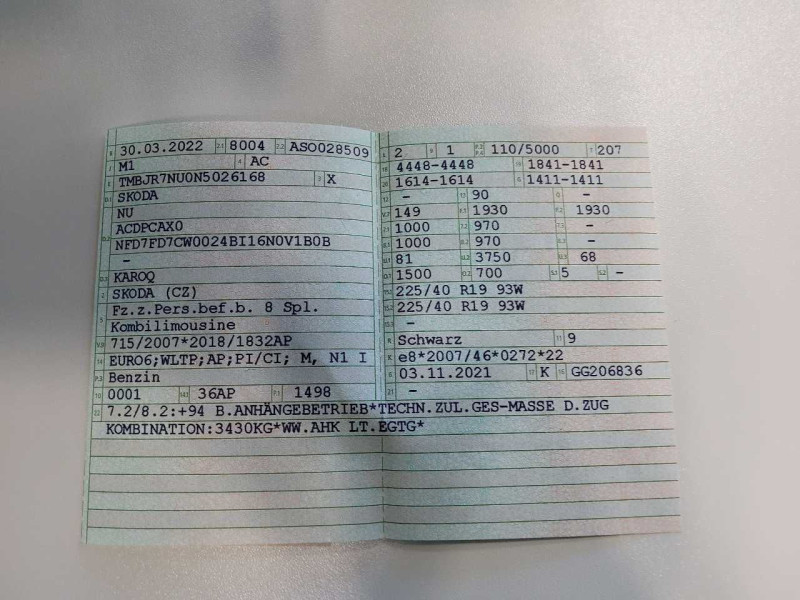 30.03.2022 8004 ASO028509
M1 AC
TMBJR7NU0N5026168 X
SKODA
NU
ACDPCAX0
NFD7FD7CW0024BI16N0V1B0B
–
KAROQ
SKODA (CZ)
Fz.z.Pers.bef.b. 8 Spl.
Kombilimousine
715/2007*2018/1832AP
EURO6;WLTP;AP;PI/CI; M, N1 I
Benzin
0001 36AP 1498
2 1 110/5000 207
4448-4448 1841-1841
1614-1614 1411-1411
– 90 –
149 1930 1930
1000 970 –
1000 970 –
81 3750 68
1500 700 5 –
225/40 R19 93W
225/40 R19 93W
–
Schwarz 9
e8*2007/46*0272*22
03.11.2021 K GG206836
–
7.2/8.2:+94 B.ANHÄNGEBETRIEB*TECHN.ZUL.GES-MASSE D.ZUG
KOMBINATION:3430KG*WW.AHK LT.EGTG*